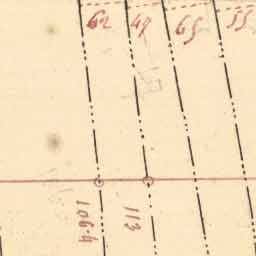 62 49 65 55
106.4
113